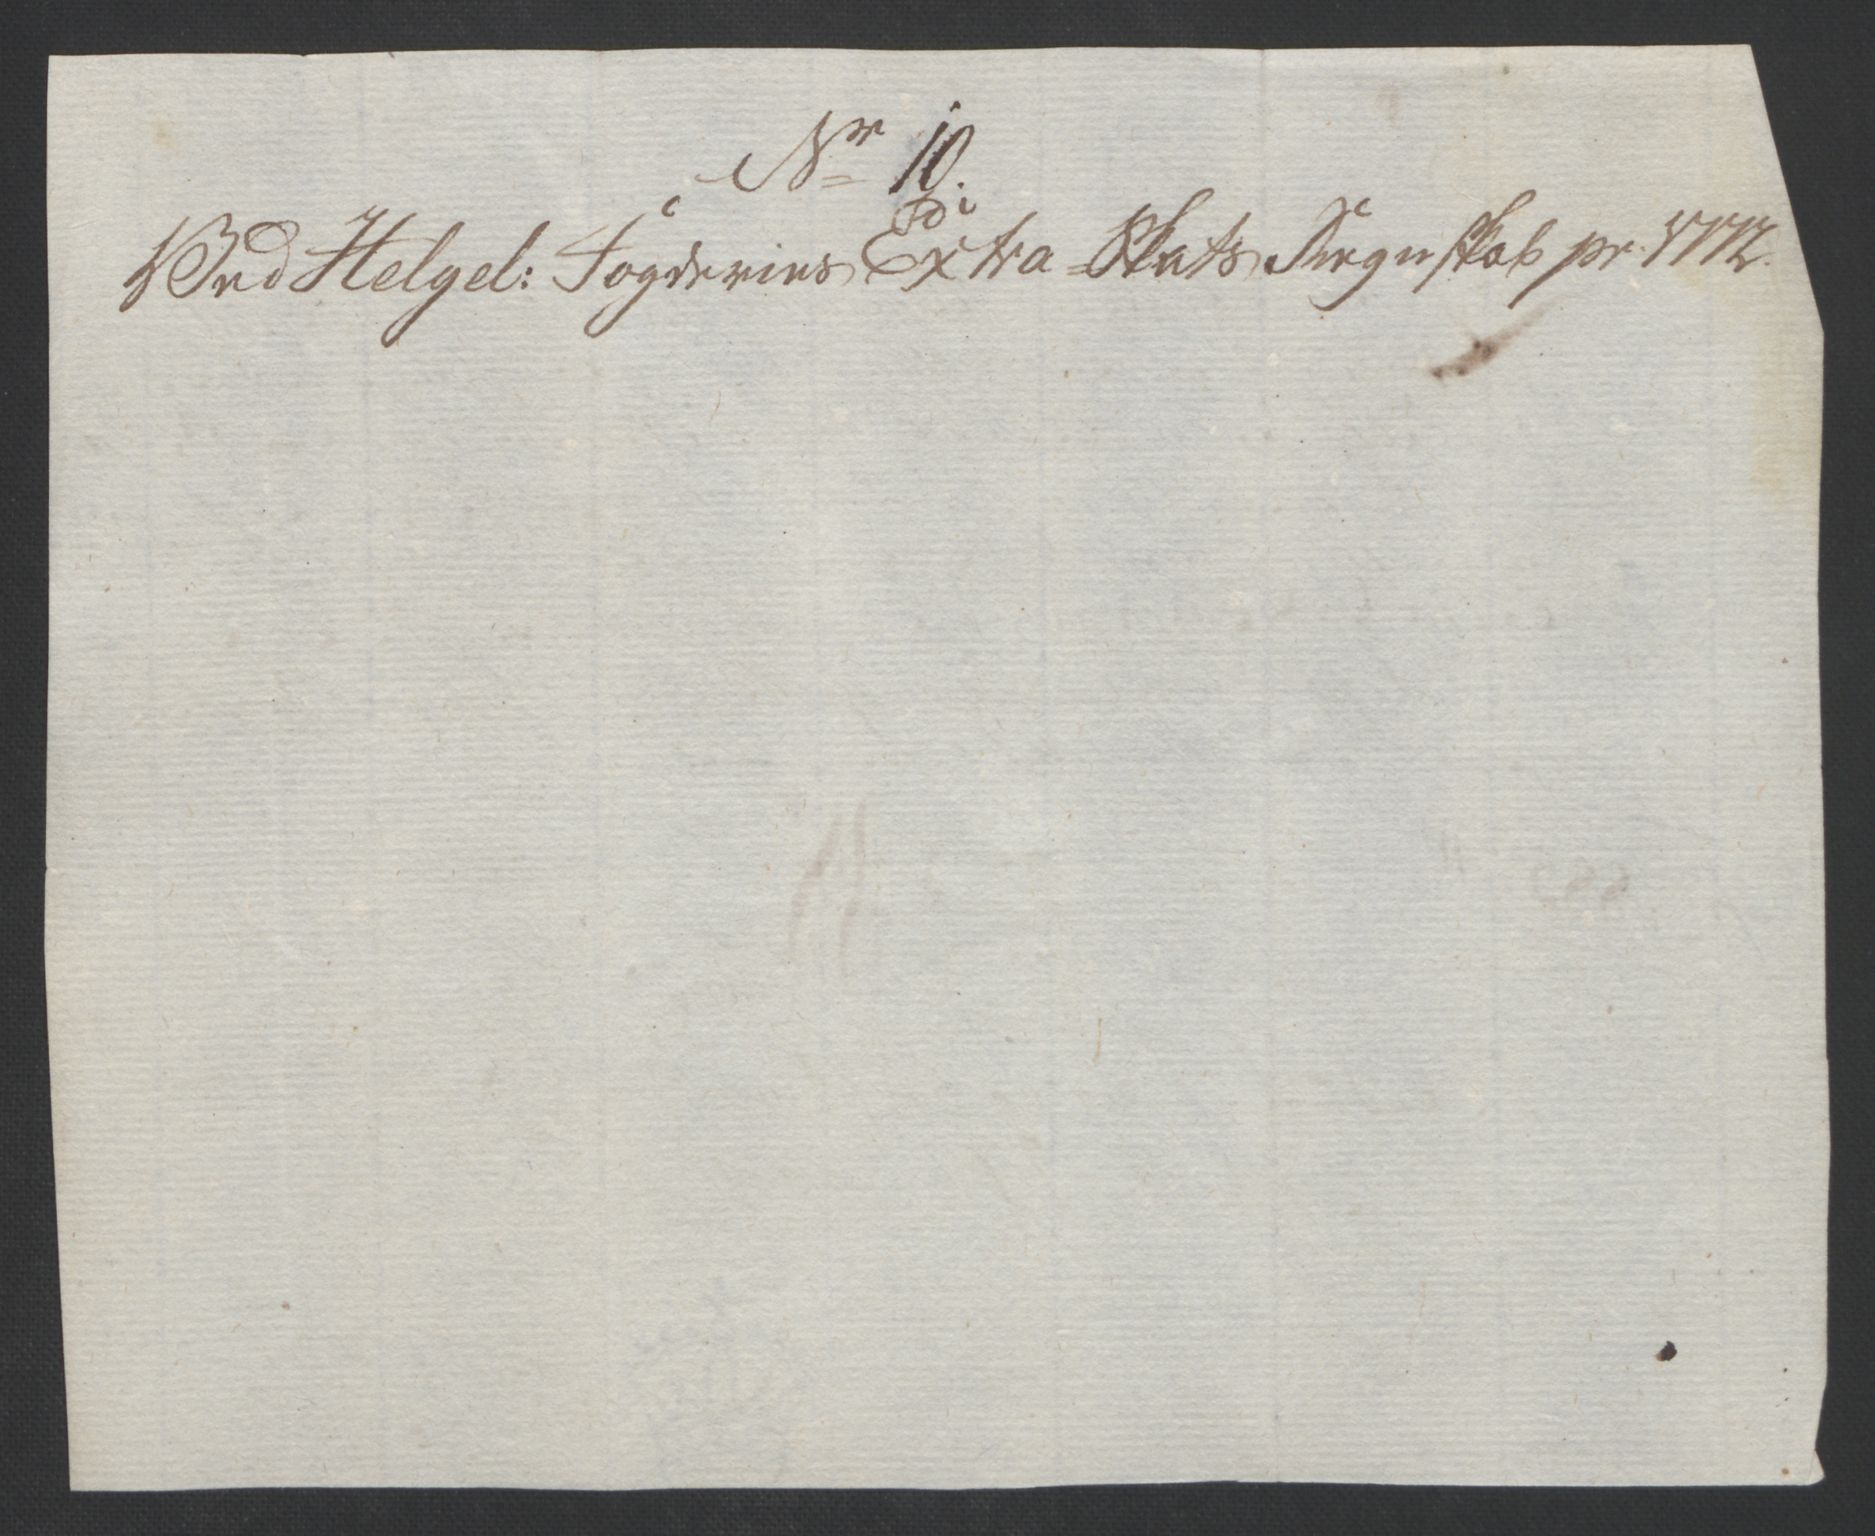 Nr 10.
Ved Helgel: Fogderies Extra Skats Regnskab pr. 1772.